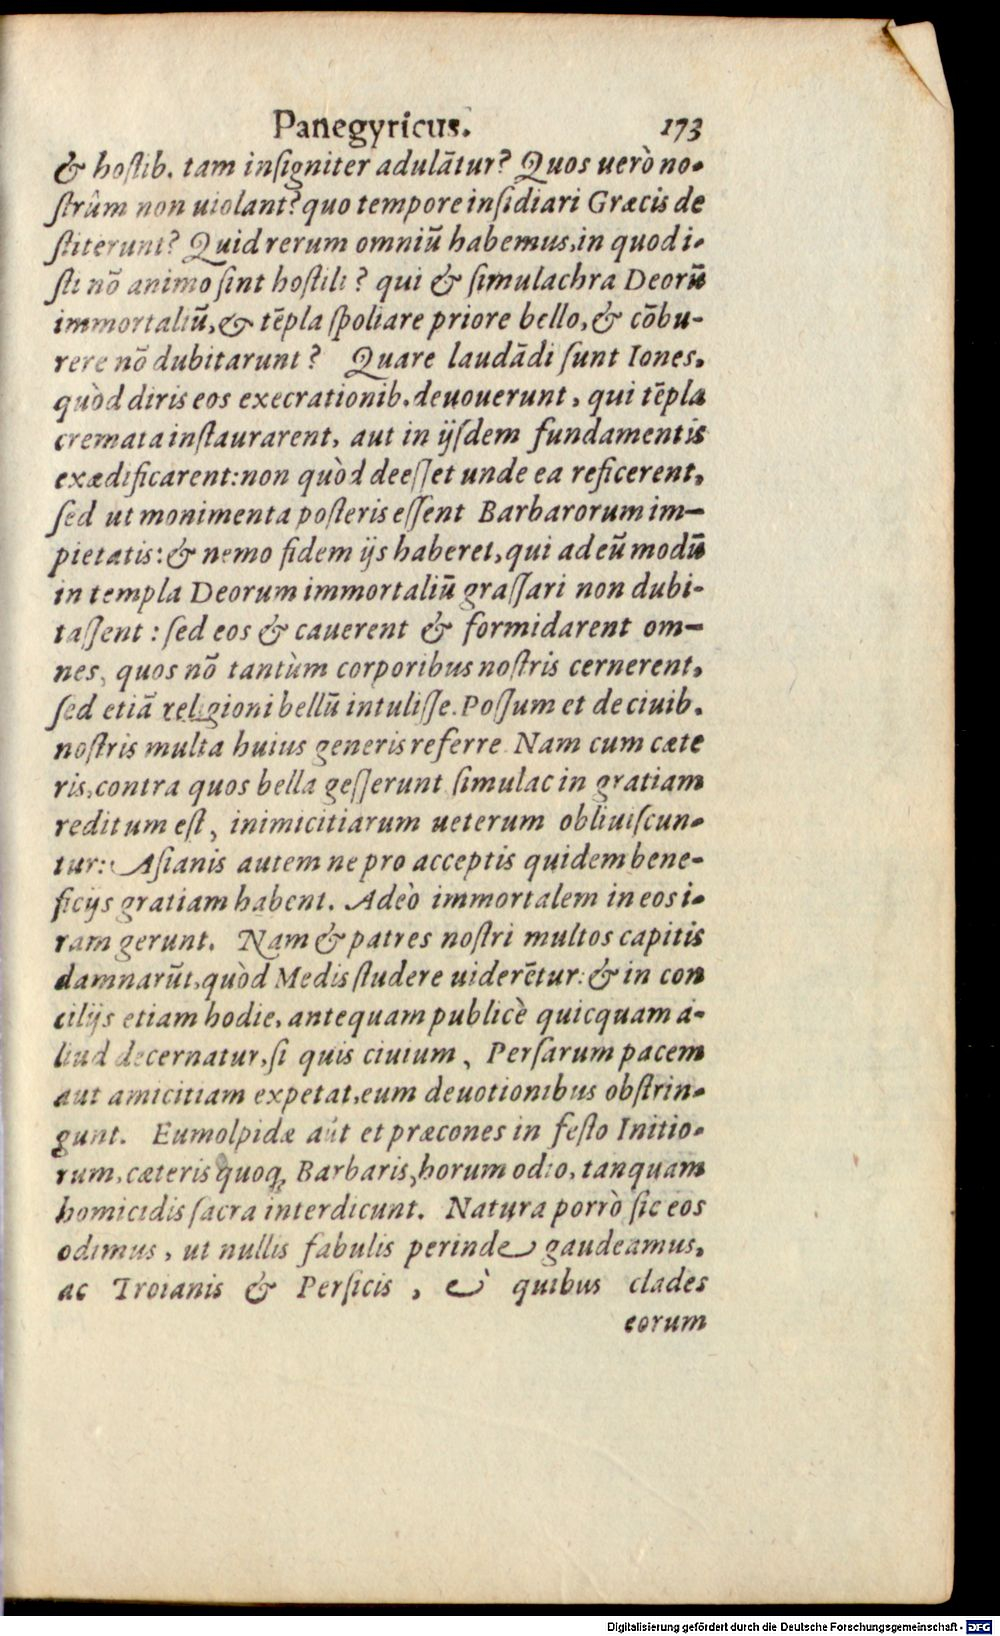 Panegyricus. 173
& hoſtib. tam inſigniter adulãtur? Quos uerò no-
ſtrûm non uiolant? quo tempore inſidiari Græcis de
ſtiterunt? Quid rerum omniũ habemus, in quod i-
ſti nõ animo ſint hoſtili? qui & ſimulachra Deorũ
immortaliũ, & tẽpla ſpoliare priore bello, & cõbu-
rere nõ dubitarunt? Quare laudãdi ſunt Iones,
quòd diris eos execrationib. deuouerunt, qui tẽpla
cremata inſtaurarent, aut in ijſdem fundamentis
exædificarent: non quòd deeſſet unde ea reficerent,
ſed ut monimenta poſteris eſſent Barbarorum im-
pietatis: & nemo fidem ijs haberet, qui ad eũ modũ
in templa Deorum immortaliũ graſſari non dubi-
taſſent: ſed eos & cauerent & formidarent om-
nes, quos nõ tantùm corporibus noſtris cernerent,
ſed etiã religioni bellũ intuliſſe. Poſſum et de ciuib.
noſtris multa huius generis referre. Nam cum cæte
ris, contra quos bella geſſerunt ſimulac in gratiam
reditum eſt, inimicitiarum ueterum obliuiſcun-
tur: Aſianis autem ne pro acceptis quidem bene-
ficijs gratiam habent. Adeò immortalem in eos i-
ram gerunt. Nam & patres noſtri multos capitis
damnarũt, quòd Medis ſtudere uiderẽtur: & in con
cilijs etiam hodie, antequam publicè quicquam a-
liud decernatur, ſi quis ciuium, Perſarum pacem
aut amicitiam expetat, eum deuotionibus obſtrin-
gunt. Eumolpidæ aũt et præcones in feſto Initio-
rum, cæteris quoq; Barbaris, horum odio, tanquam
homicidis ſacra interdicunt. Natura porrò ſic eos
odimus, ut nullis fabulis perinde gaudeamus,
ac Troianis & Perſicis, è quibus clades
eorum
Digitalisierung gefördert durch die Deutsche Forschungsgemeinschaft - DFG